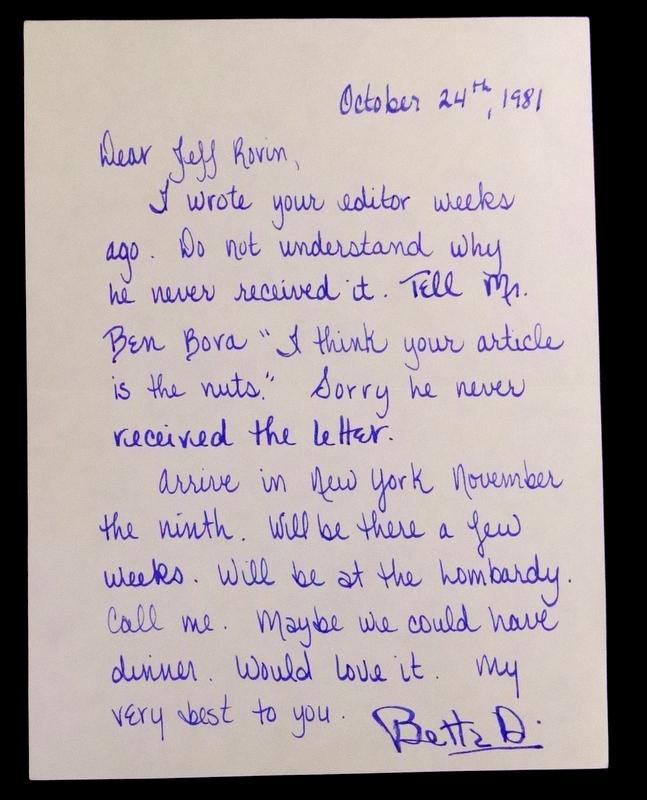 October 24th, 1981
Dear Jeff Rovin,
I wrote your editor weeks
ago. Do not understand why
he never received it. Tell Mr.
Ben Bova "I think your article
is the nuts." Sorry he never
received the letter.
Arrive in New York November
the ninth. Will be there a few
weeks. Will be at the Lombardy.
Call me. Maybe we could have
dinner. Would love it. My
very best to you. Bette D.